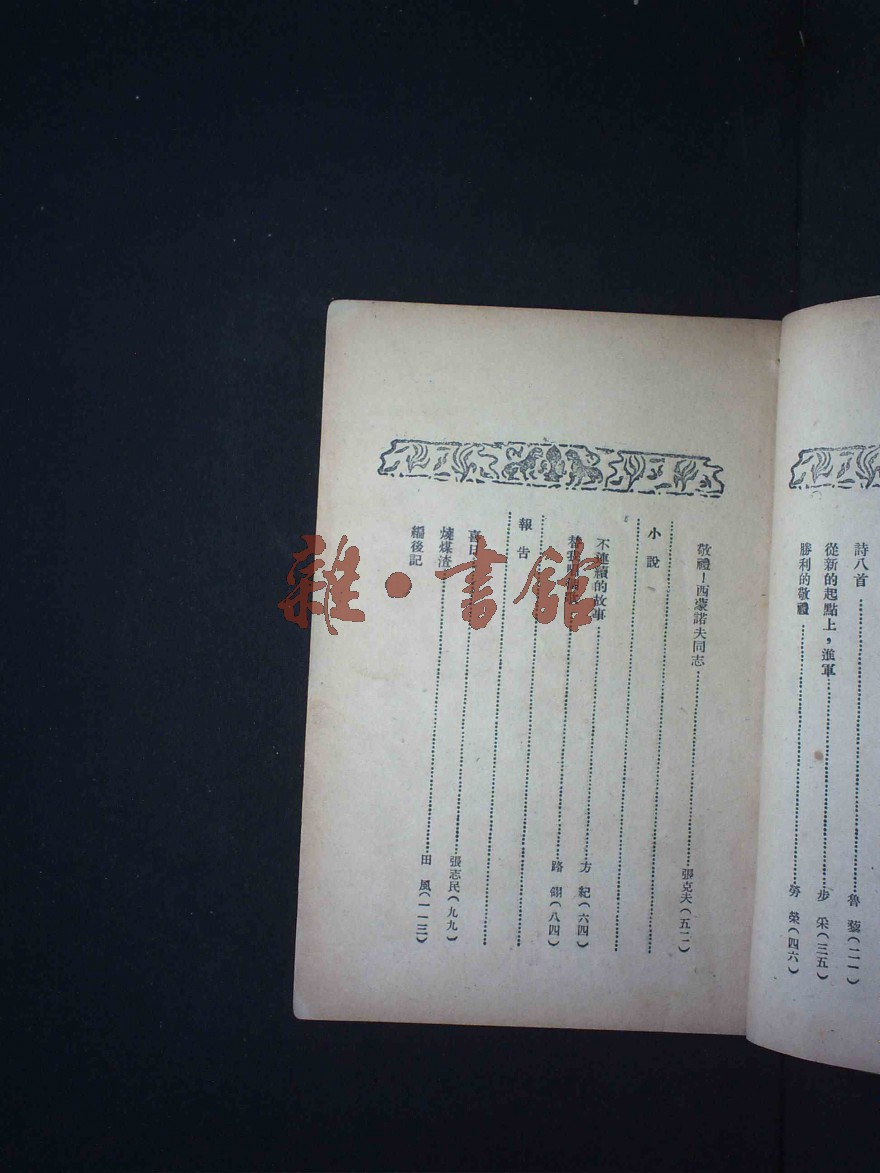 詩八首 魯藜(二一)
從新的起點上,進軍 步采(三五)
勝利的敬禮 勞榮(四六)
敬禮!西蒙諾夫同志 張克夫(五二)
小說
不連續的故事 方紀(六四)
替我 路翎(八四)
報告
喜日
燒煤渣 張志民(九九)
編後記 田風(一一三)
雜·書館